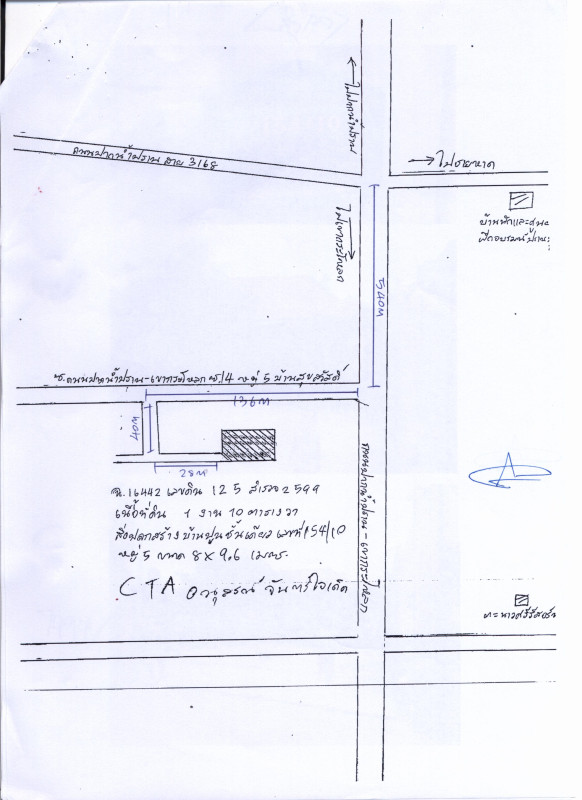 ไปปากน้ำปราณ
ถนนปากน้ำปราณ สาย 3168
→ ไปชายหาด
บ้านพักและศูนย์
ฝึกอบรมน้ำปราณ
ไปเขากะโหลก
540 m
ซ.ถนนปากน้ำปราณ-เขากะโหลก ซ.14 หมู่ 5 บ้านสุขสวัสดิ์
136 m
40 m
28 m
ฉ.16442 เลขดิน 125 สำรวจ 2599
เนื้อที่ดิน 1 งาน 10 ตารางวา
สิ่งปลูกสร้าง บ้านปูนชั้นเดียว เลขที่ 154/10
หมู่ 5 ขนาด 8 x 9.6 เมตร.
CTA อนุสรณ์ จันทร์ใจเด็ด
ถนนปากน้ำปราณ - เขากะโหลก